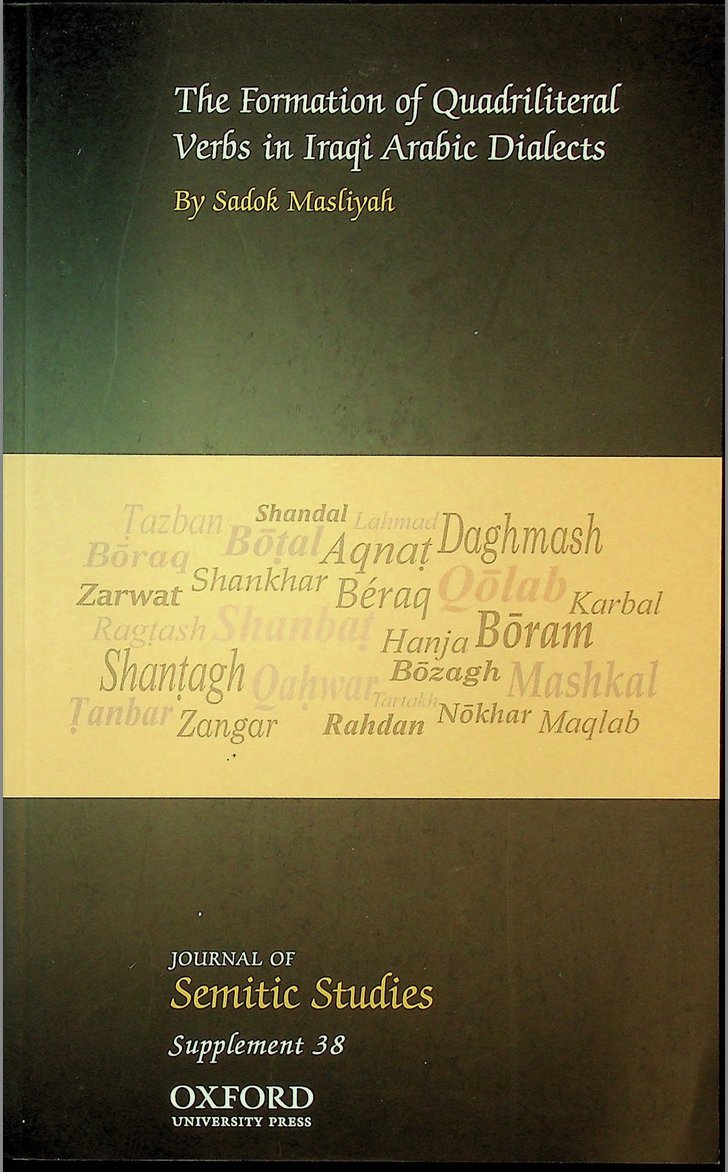 The Formation of Quadriliteral
Verbs in Iraqi Arabic Dialects
By Sadok Masliyah
Tazban Shandal Lahmad Daghmash
Bōraq Bōṭal Aqnaṭ
Zarwat Shankhar Béraq Qōlab Karbal
Ragṭash Shanbaṭ Hanja Bōram
Shanṭagh Qaḥwar Bōzagh Mashkal
Ṭanbar Zangar Tartakh Rahdan Nōkhar Maqlab
JOURNAL OF
Semitic Studies
Supplement 38
OXFORD
UNIVERSITY PRESS